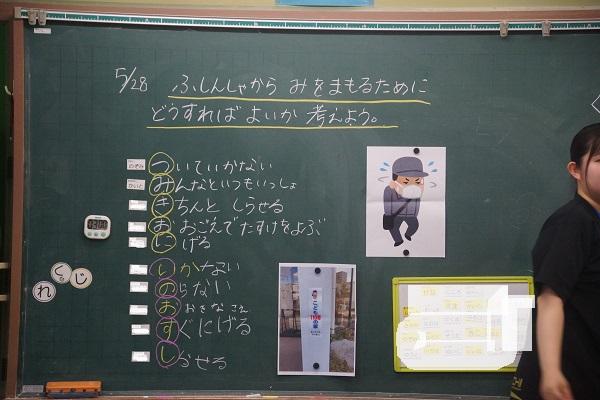 5/28 ふしんしゃから みをまもるために
どうすればよいか 考えよう。
のぞみ ついていかない
かいと みんなといつもいっしょ
きちんと しらせる
おおごえで たすけをよぶ
にげる
いかない
のらない
おおきな さえ
すぐにげる
しらせる
れ
く。
じ
こども
110番
の家